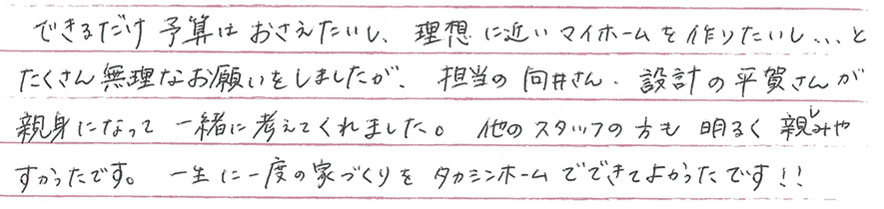 できるだけ予算はおさえたいし、理想に近いマイホームを作りたいし...と
たくさん無理なお願いをしましたが、担当の向井さん・設計の平賀さんが
親身になって一緒に考えてくれました。他のスタッフの方も明るく親しみや
すかったです。一生に一度の家づくりをタカシンホームでできてよかったです!!